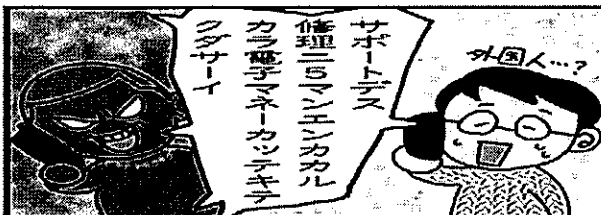 外国人…?
サポートデス
修理ニ5マンエンカカル
カラ電子マネーカッテキテ
クダサーイ